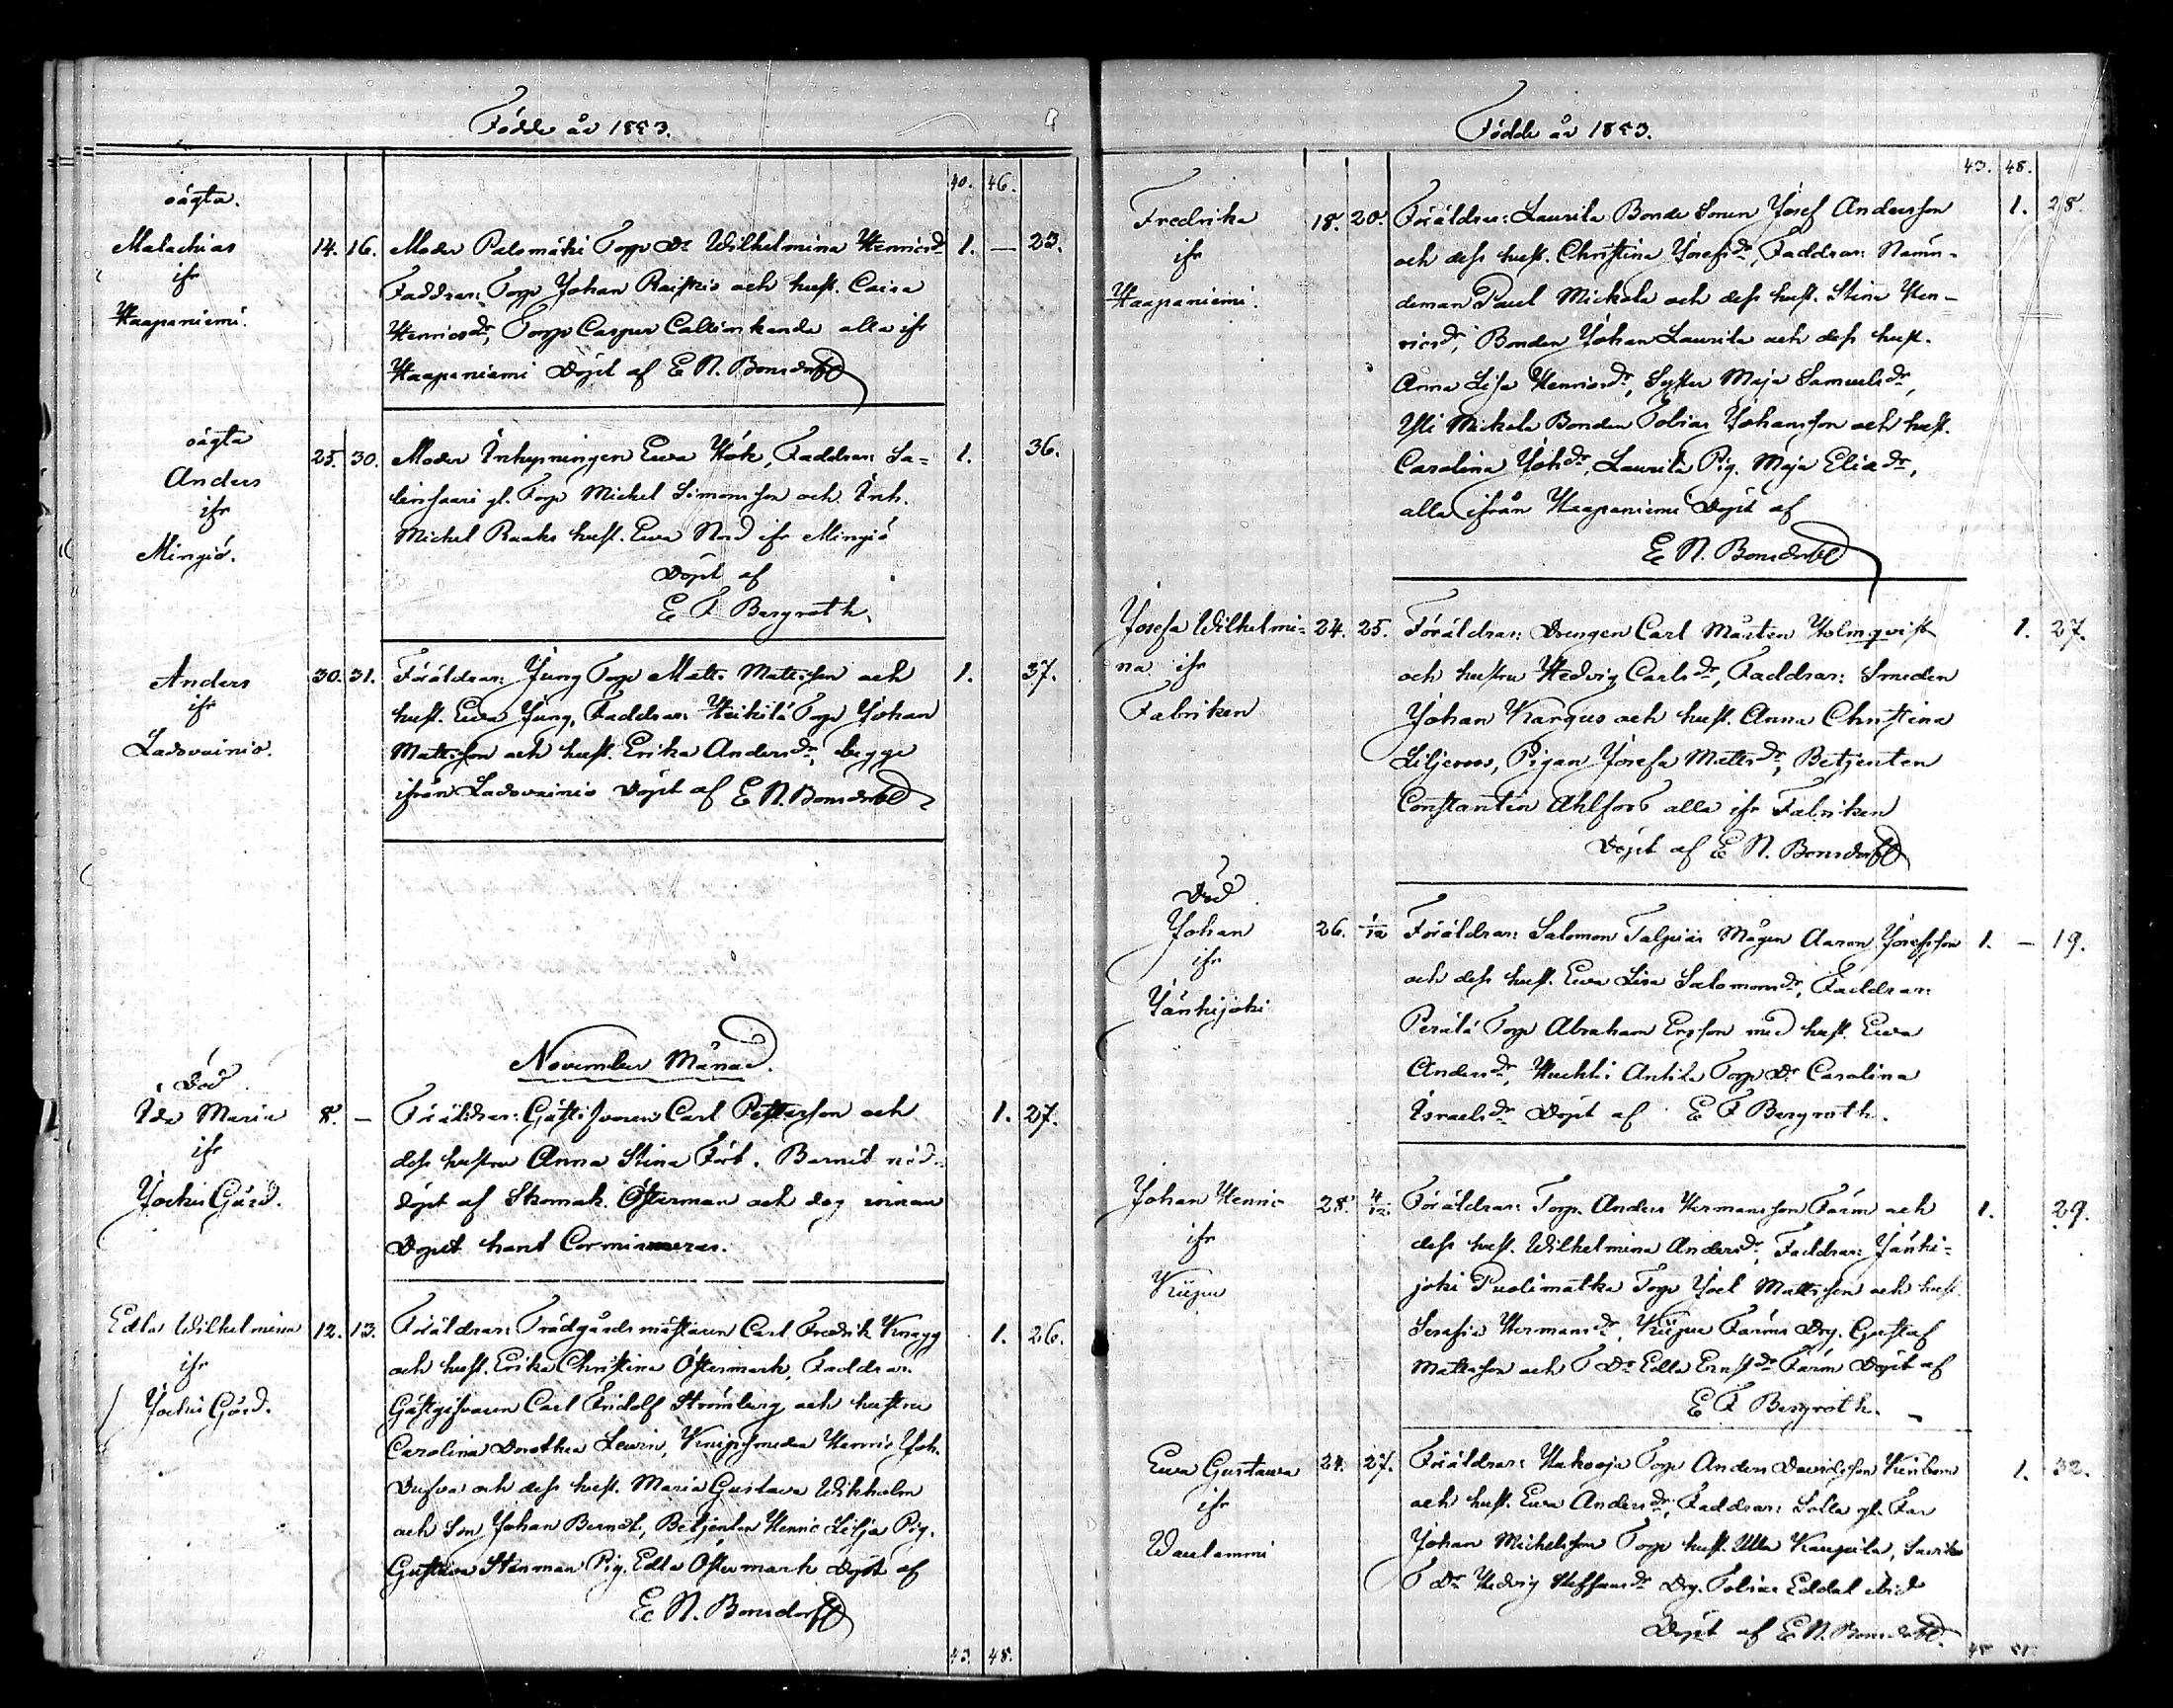 Födde år 1853.
40. 46.
oägta.
Malachias 14. 16. Moder Palomäki Torp Dr Wilhelmina Henricsdr 1. — 23.
ifr Faddrar: Torp Johan Raiskio och hust. Caisa
Haapaniemi. Henricsdr, Torp Casper alla ifr
Haapaniemi Döpt af E N. Bonsdorff
oägta
Anders 25. 30. Moder Inhysningen Ewa Hök, Faddrar: Sa= 1. 36.
ifr lensaari gl. Torp Michel Simonsson och Inh.
Mingiö. Michel Raaks hust. Ewa Nord ifr Mingiö
Döpt af
E F Bergroth.
Anders 30. 31. Föräldrar: Jung Torp Matts Mattsson och 1. 37.
ifr hust. Ewa Jung, Faddrar: Heikilä Torp Johan
Ladovainio. Mattsson och hust. Erika Andersdr, begge
ifrån Ladovainio Döpt af E N. Bonsdorff
November Månad.
Död
Ida Maria 8. — Föräldrar: Gästifvaren Carl Pettersson och 1. 27.
ifr dess hustru Anna Stina Fört. Barnet nöd=
Jockis Gård. döpt af Skomak. Österman och dog innan
Dopet hant Cormineras.
Edla Wilhelmina 12. 13. Föräldrar: Trädgårdsmästaren Carl Fredrik Knagg 1. 26.
ifr och hust. Erika Christina Östermark, Faddrar:
Jockis Gård. Gästgifvaren Carl Fridolf Strömberg och hustru
Carolina Dorothea Lewin, Knipsmeden Henric Joh.
Dufva och dess hust. Maria Gustava Wikholm
och Son Johan Berndt, Betjenten Henric Lilja Pig.
Gustava Stenman Pig. Edla Östermark Döpt af
E N. Bonsdorff
43. 48.
Födde år 1853.
43. 48.
Fredrika 18. 20. Föräldrar: Laurila Bonde Sonen Josef Andersson 1. 28.
ifr och dess hust. Christina Josefsdr, Faddrar: Nämn=
Haapaniemi. deman Paul Mickola och dess hust. Stina Hen=
ricsdr, Bonden Johan Laurila och dess hust.
Anna Lisa Henricsdr, Syster Maja Samuelsdr,
Yli Mickola Bonden Tobias Johansson och hust.
Carolina Johdr, Laurila Pig. Maja Eliædr,
alla ifrån Haapaniemi Döpt af
E N. Bonsdorff
Josefa Wilhelmi= 24. 25. Föräldrar: Drengen Carl Mårten Holmqvist 1. 27.
na ifr och hustru Hedvig Carlsdr, Faddrar: Smeden
Fabriken Johan Kargus och hust. Anna Christina
Liljeroos, Pigan Josefa Mattsdr, Betjenten
Constantin Ahlfors alla ifr Fabriken
Döpt af E N. Bonsdorff
Död
Johan 26. 1/12 Föräldrar: Salomon Talpiais Mågen Aaron Josefsson 1. — 19.
ifr och dess hust. Ewa Lisa Salomonsdr, Faddrar:
Jänhijoki Perälä Torp Abraham Ersson med hust. Ewa
Andersdr, Huchti Antila Torp Dr Carolina
Israelsdr Döpt af E F Bergroth.
Johan Henric 28. 4/12 Föräldrar: Torp. Anders Hermansson Farm och 1. 29.
ifr dess hust. Wilhelmina Andersdr. Faddrar: Jänhi=
Kiipu joki Puolimatka Torp Joel Mattsson och hust.
Serafia Hermansdr, Kiipu Farms Drg. Gustaf
Mattsson och T Dr Edla Ernstdr Farm Döpt af
E F Bergroth.
Ewa Gustawa 24. 27. Föräldrar: Hakooja Torp Anders Davidsson 1. 32.
ifr och hust. Ewa Andersdr, Faddrar: Salla gl. Far
Waulammi Johan Michelsson Torp hust. Ulla
T Dr Hedvig Staffansdr Drg. Tobias
Döpt af E N. Bonsdorff.
45 51